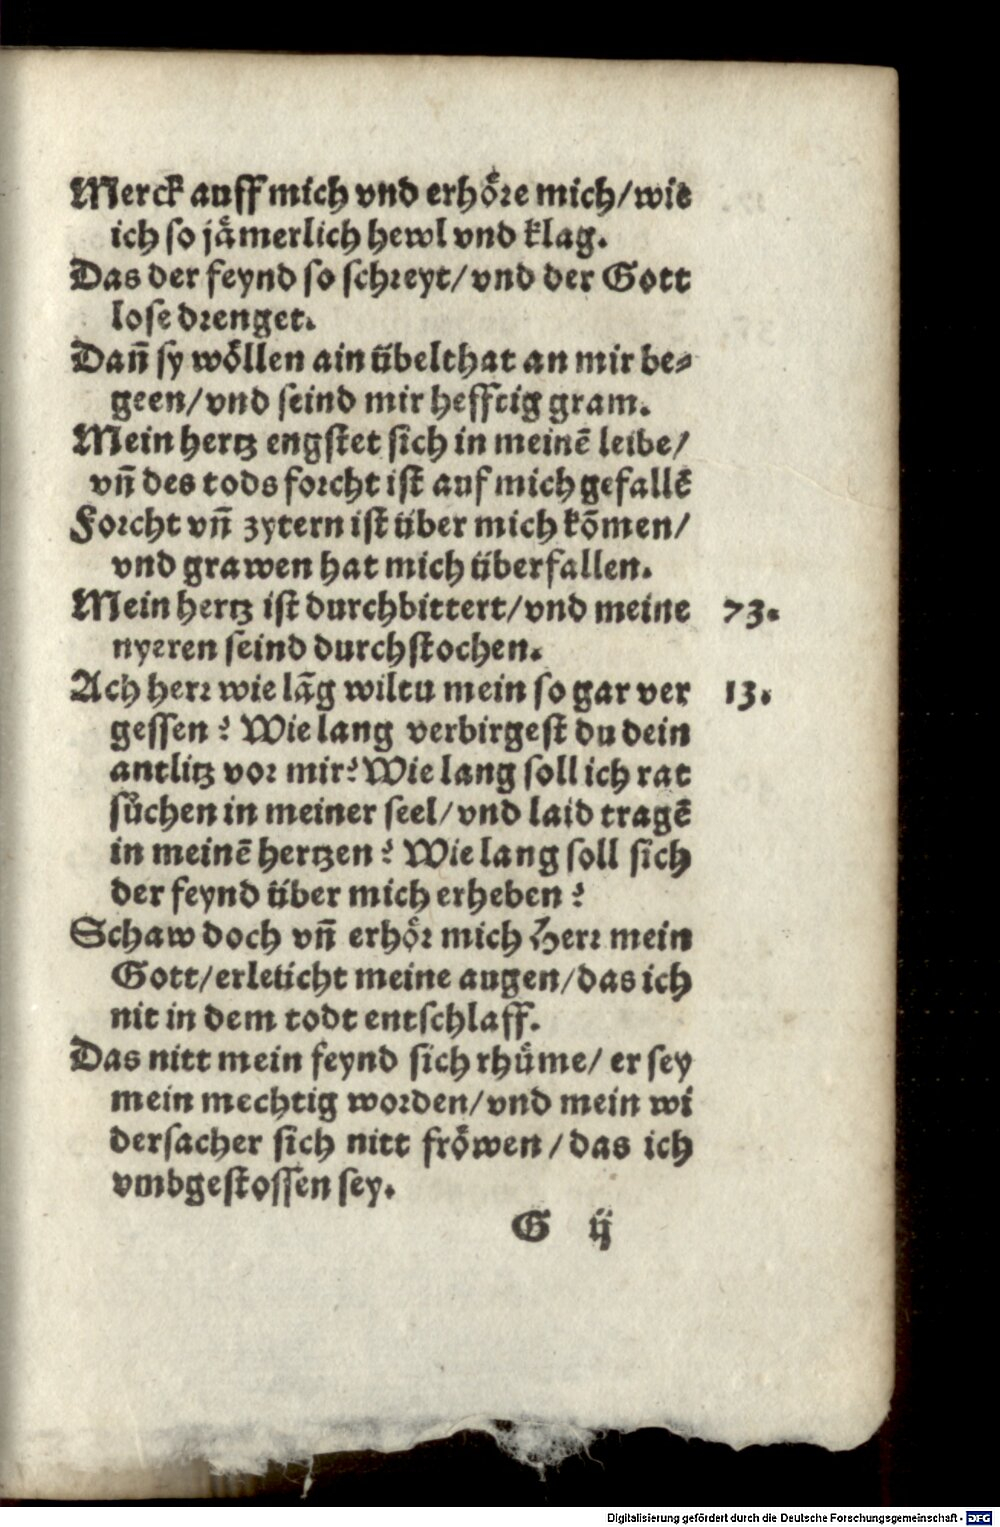 Merck auff mich vnd erhoͤre mich/wie
ich so jaͤmerlich hewl vnd klag.
Das der feynd so schreyt/vnd der Gott
lose drenget.
Dañ sy woͤllen ain übelthat an mir be⸗
geen/vnd seind mir hefftig gram.
Mein hertz engstet sich in meinē leibe/
vñ des tods forcht ist auf mich gefallē
Forcht vñ zytern ist über mich kōmen/
vnd grawen hat mich überfallen.
Mein hertz ist durchbittert/vnd meine 73.
nyeren seind durchstochen.
Ach herr wie lāg wiltu mein so gar ver 13.
gessen? Wie lang verbirgest du dein
antlitz vor mir? Wie lang soll ich rat
suͦchen in meiner seel/vnd laid tragē
in meinē hertzen? Wie lang soll sich
der feynd über mich erheben?
Schaw doch vñ erhoͤr mich Herr mein
Gott/erleücht meine augen/das ich
nit in dem todt entschlaff.
Das nitt mein feynd sich rhuͤme/ er sey
mein mechtig worden/vnd mein wi
dersacher sich nitt froͤwen/das ich
vmbgestossen sey.
G ij
Digitalisierung gefördert durch die Deutsche Forschungsgemeinschaft - DFG